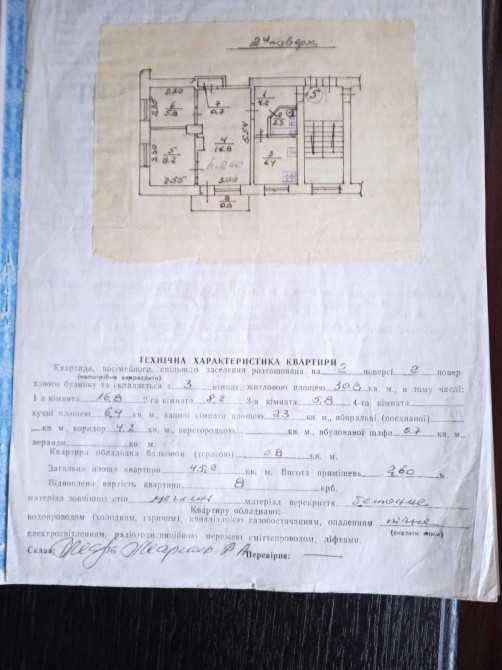 2й поверх
2.30
6
5.8
7
0.7
1
4.2
15
5.54
4
16.8
5
8.2
h=260
3
6.4
2.55
8
0.8
ТЕХНІЧНА ХАРАКТЕРИСТИКА КВАРТИРИ
Квартира, посімейного, спільного заселення розташована на 2 поверсі 2 повер-
(непотрібне закреслити)
хового будинку та складається з 3 кімнат, житловою площею 30.8 кв. м., в тому числі:
1-а кімната 16,8 2-га кімната 8,2 3-я кімната 5,8 4-та кімната
кухні площею 6,4 кв. м., ванної кімнати площею кв. м., вбиральні (поєднаної)
кв. м., коридор 4.2 кв. м., перегородкою кв. м., вбудованої шафи 0.7 кв. м.,
веранди кв. м.
Квартира обладнана балконом (терасою) 0.8 кв. м.
Загальна площа квартири 45,2 кв. м. Висота приміщень 260
Відновлена вартість квартири крб.
матеріал зовнішніх стін матеріал перекриття бетонне
Квартиру обладнано:
водопроводом (холодним, гарячим), каналізацією газопостачанням, опаленням пічне
(вказати яким)
електроосвітленням, радіотрансляційною мережею сміттєпроводом, ліфтами.
Склав: Перевірив: